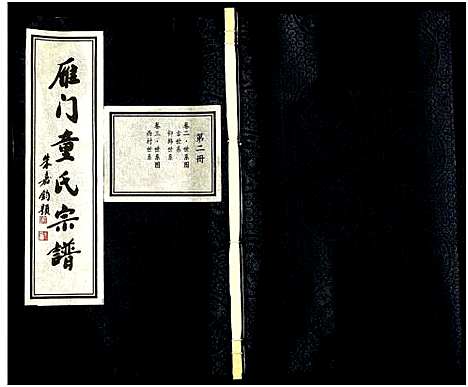 雁门童氏宗譜
朱嘉钧题
第二册
卷二·世系图
古世系
卷三·世系图
西村世系